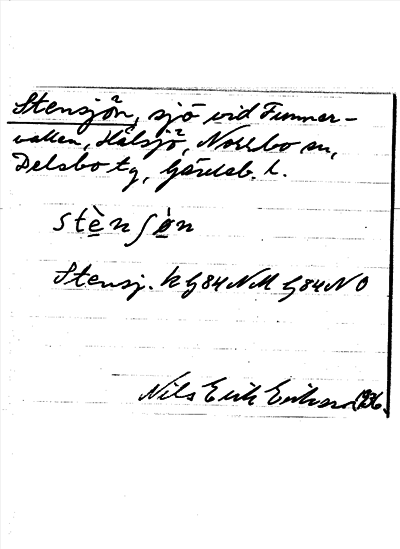 Stensjön, sjö vid Fummer-
vallen, Hålsjö, Norrbo sn,
Delsbo tg, Gävleb. l.
stèn ʃøn
Stensj. k G84NM G84NO
Nils Erik Eriksson 1936.